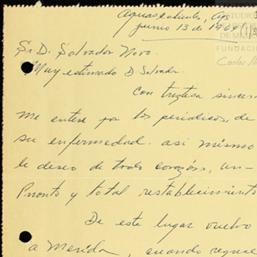 Aguascalientes, Ags
junio 13 de 1969
Sr. D. Salvador Novo.
Muy estimado D. Salvador
Con tristeza sincera
me entere por los periodicos, de
su enfermedad. asi mismo
le deseo de todo corazón, un
Pronto y total restablecimiento
De este lugar vuelvo
a Merida, cuando regrese